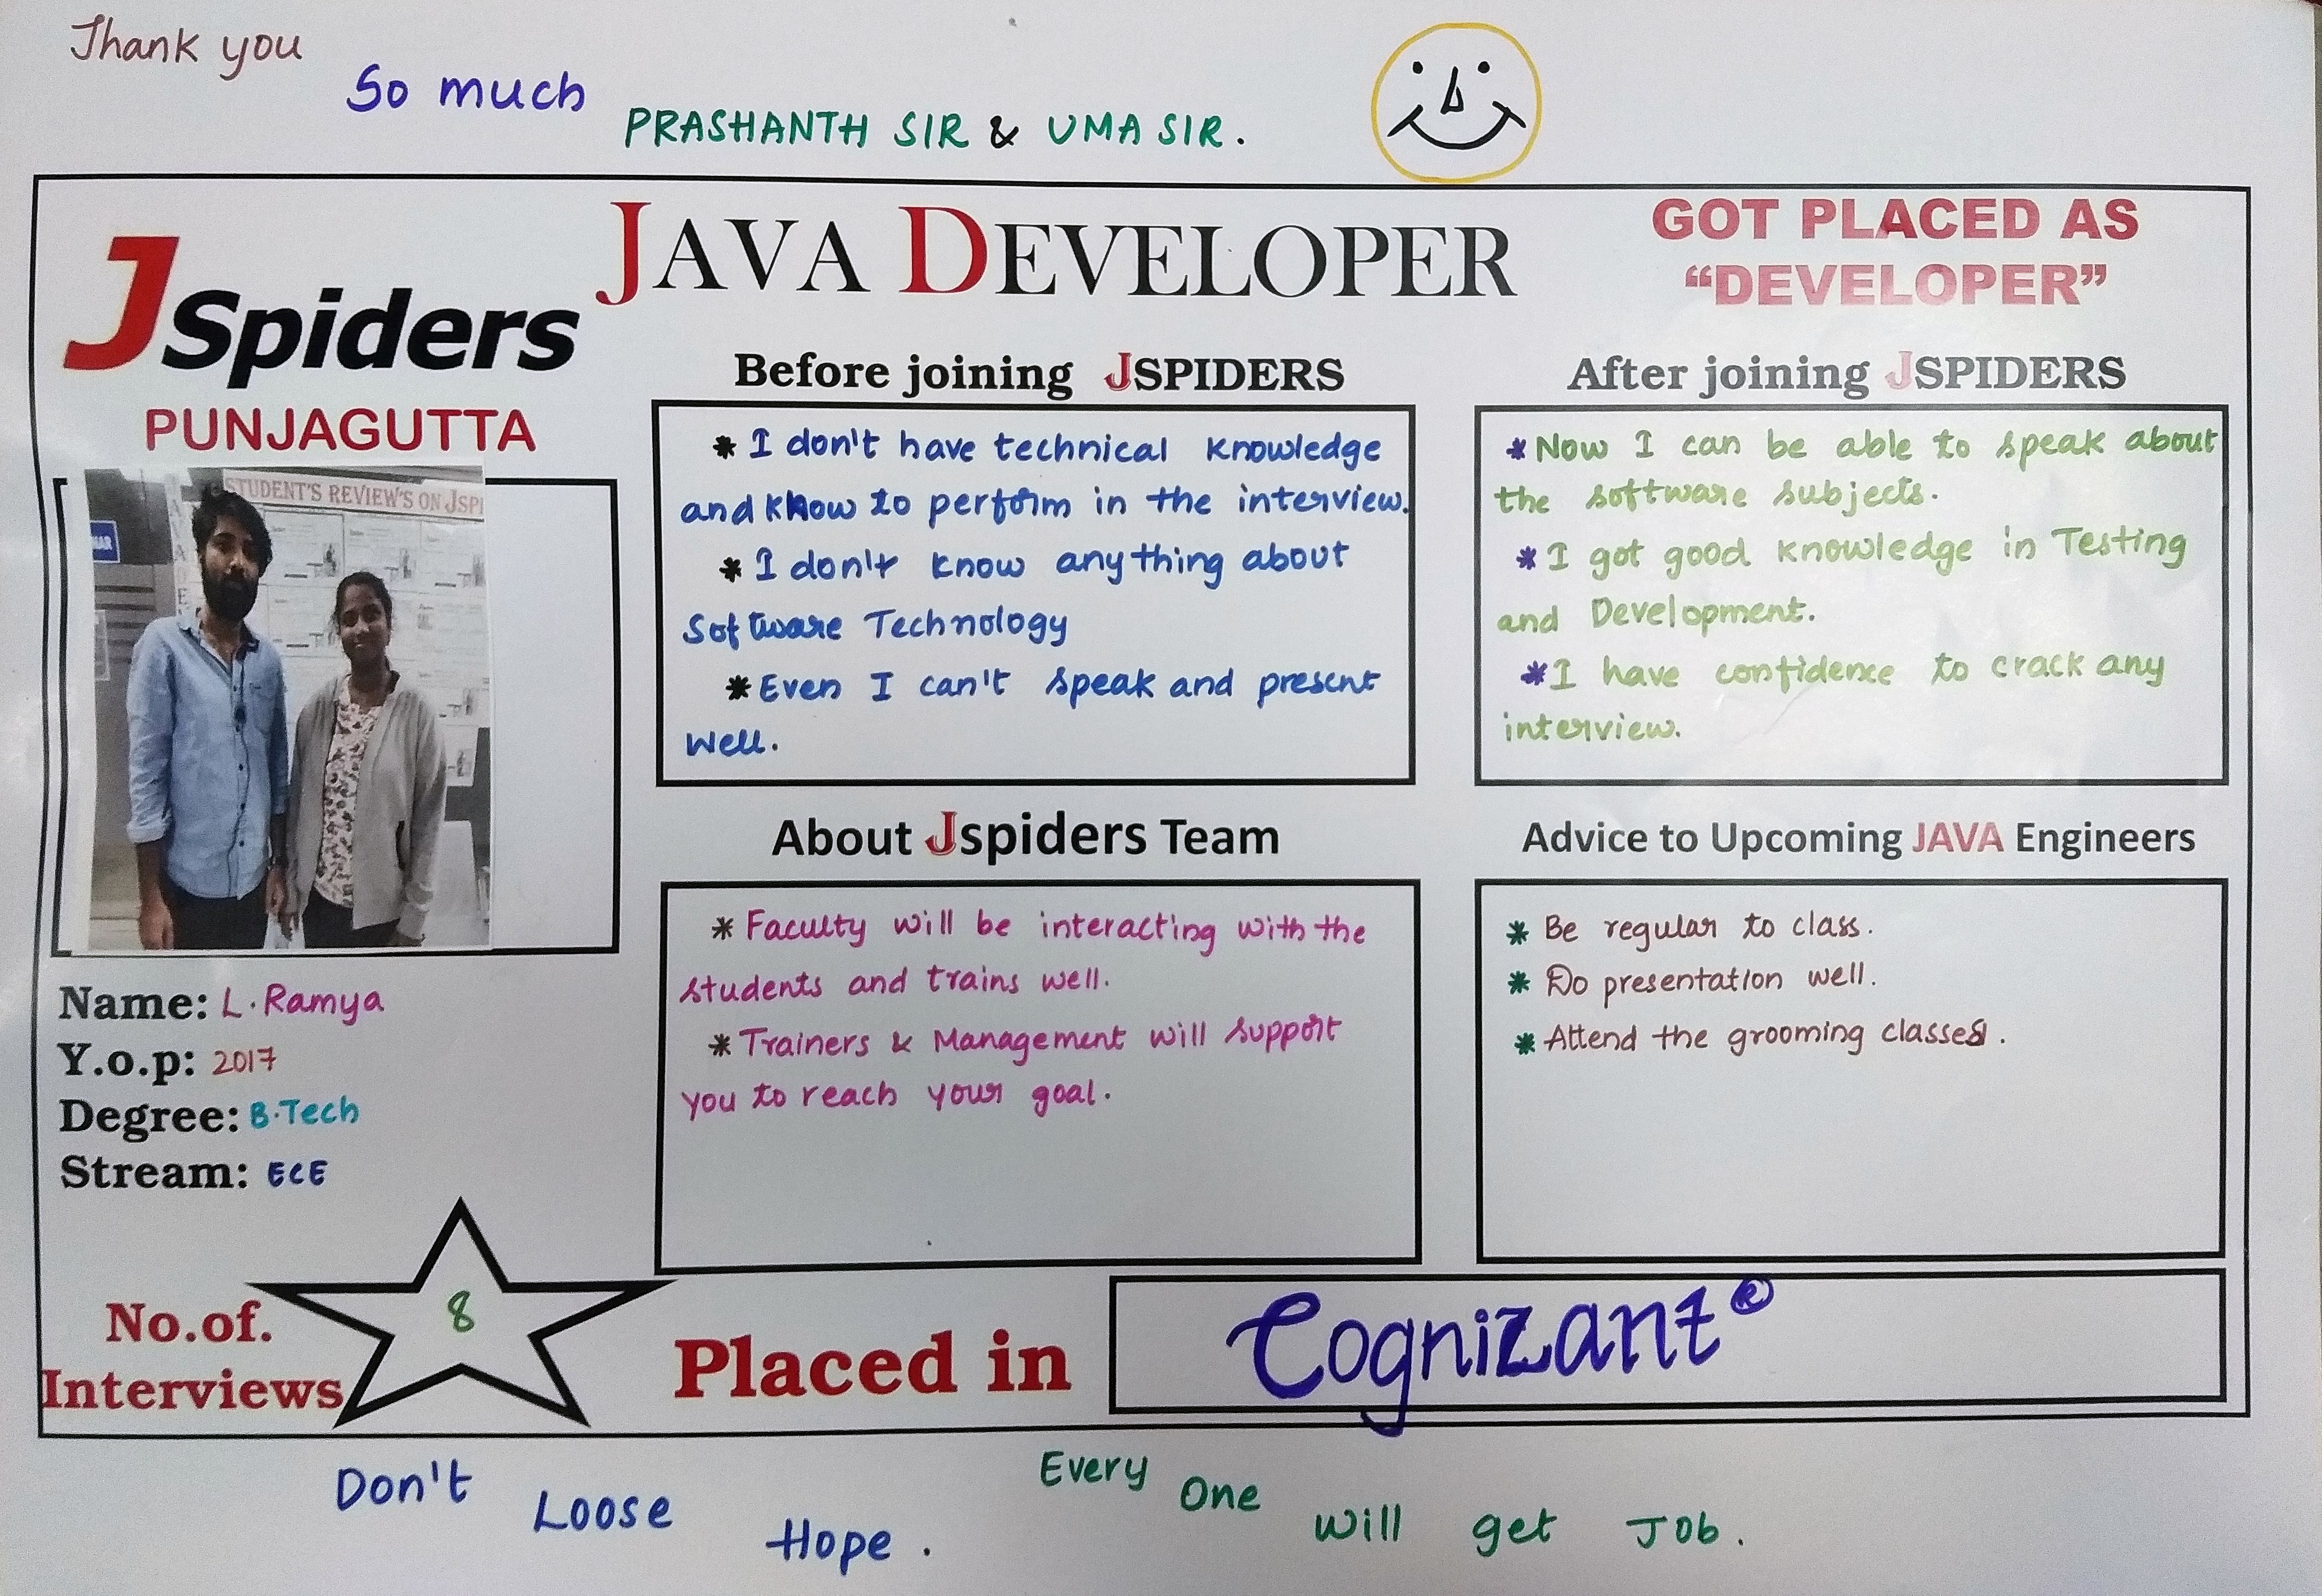 Thank you
So much
PRASHANTH SIR & UMA SIR.
JSpiders
PUNJAGUTTA
JAVA DEVELOPER
GOT PLACED AS
“DEVELOPER”
STUDENT'S REVIEW'S ON JSPI
Name: L. Ramya
Y.o.p: 2017
Degree: B.Tech
Stream: ECE
Before joining JSPIDERS
* I don't have technical knowledge
and know to perform in the interview.
* I don't know anything about
Software Technology
* Even I can't speak and present
well.
After joining JSPIDERS
* Now I can be able to speak about
the software subjects.
* I got good knowledge in Testing
and Development.
* I have confidence to crack any
interview.
About Jspiders Team
* Faculty will be interacting with the
students and trains well.
* Trainers & Management will support
you to reach your goal.
Advice to Upcoming JAVA Engineers
* Be regular to class.
* Do presentation well.
* Attend the grooming classes.
No.of.
Interviews
8
Placed in
Cognizant®
Don't Loose Hope.
Every One will get Job.